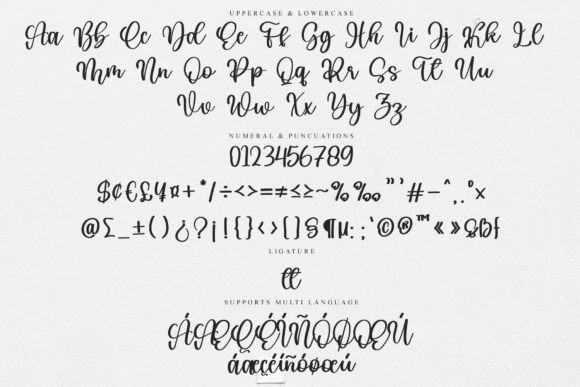 UPPERCASE & LOWERCASE
Aa Bb Cc Dd Ee Ff Gg Hh Ii Jj Kk Ll
Mm Nn Oo Pp Qq Rr Ss Tt Uu
Vv Ww Xx Yy Zz
NUMERAL & PUNCUATIONS
0123456789
$¢€£¥¤+*/÷<>=≠≤≥~%‰"'#-^,.°×
@∑_±()¿?¡!{}<>[]§¶µ:;'©®™«»ßƒ
LIGATURE
tt
SUPPORTS MULTI LANGUAGE
ÁÆÇÉÍÑÓØŒÚ
áæçéíñóøœú